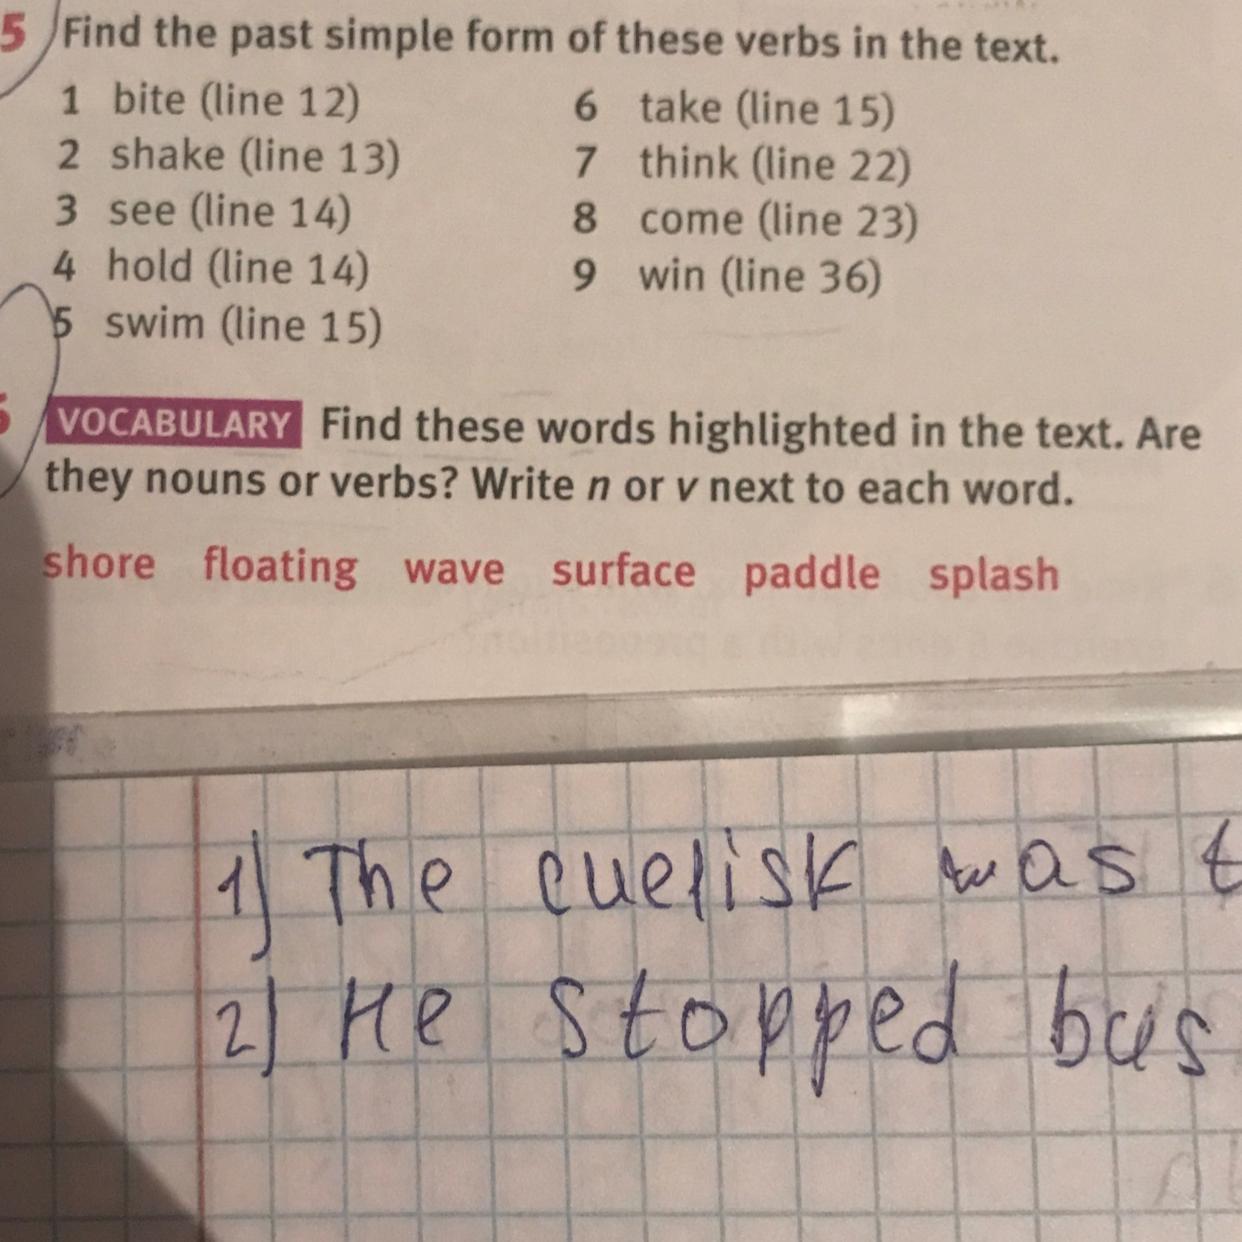 5 Find the past simple form of these verbs in the text.
1 bite (line 12)
2 shake (line 13)
3 see (line 14)
4 hold (line 14)
5 swim (line 15)
6 take (line 15)
7 think (line 22)
8 come (line 23)
9 win (line 36)
VOCABULARY Find these words highlighted in the text. Are
they nouns or verbs? Write n or v next to each word.
shore floating wave surface paddle splash
1) The was t
2) He stopped bus